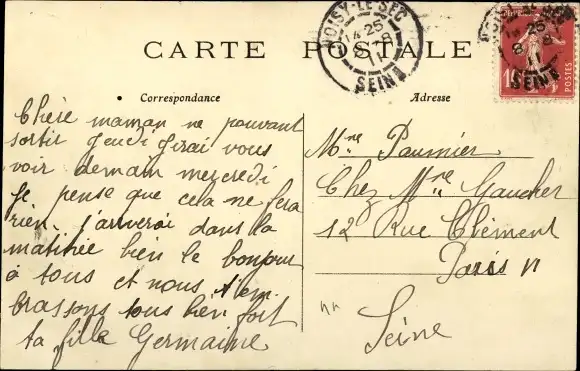 CARTE POSTALE
NOISY-LE-SEC
14 25
8 - 8
11
SEINE
10
POSTES
Correspondance
Adresse
Chère maman ne pouvant
sortir jeudi j'irai vous
voir demain mercredi
je pense que cela ne fera
rien. j'arriverai dans la
matinée bien le bonjour
à tous et nous t'em
brassons tous bien fort
ta fille Germaine
Mme Paumier
Chez Mme Gaucher
12 Rue Clément
Paris VI
Seine